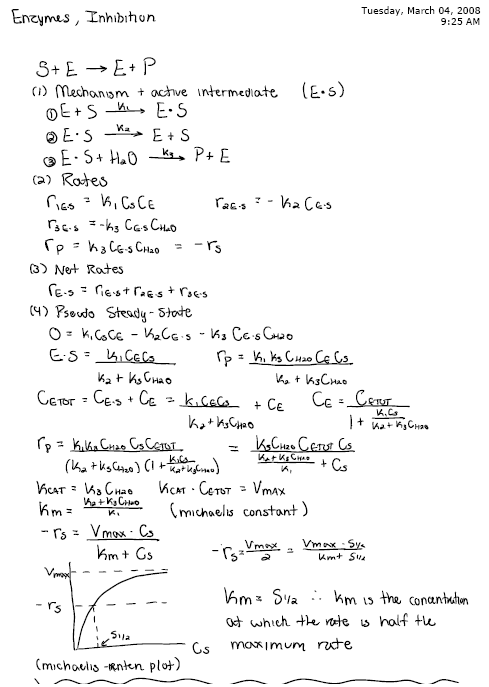 Enzymes, Inhibition
Tuesday, March 04, 2008
9:25 AM
S + E → E + P
(1) Mechanism + active intermediate (E•S)
① E + S —k₁→ E•S
② E•S —k₂→ E + S
③ E•S + H₂O —k₃→ P + E
(2) Rates
r₁E•S = k₁CsCE r₂E•S = -k₂CE•S
r₃E•S = -k₃CE•SCH₂O
rP = k₃CE•SCH₂O = -rs
(3) Net Rates
rE•S = r₁E•S + r₂E•S + r₃E•S
(4) Pseudo Steady-State
0 = k₁CsCE - k₂CE•S - k₃CE•SCH₂O
E•S = k₁CECs / (k₂ + k₃CH₂O) rP = k₁k₃CH₂OCECs / (k₂ + k₃CH₂O)
CETOT = CE•S + CE = k₁CECs / (k₂ + k₃CH₂O) + CE CE = CETOT / (1 + k₁Cs / (k₂ + k₃CH₂O))
rP = k₁k₃CH₂OCsCETOT / ((k₂ + k₃CH₂O)(1 + k₁Cs / (k₂ + k₃CH₂O))) = k₃CH₂OCETOTCs / ((k₂ + k₃CH₂O) / k₁ + Cs)
kCAT = k₃CH₂O kCAT•CETOT = Vmax
km = (k₂ + k₃CH₂O) / k₁ (michaelis constant)
-rs = Vmax•Cs / (km + Cs) -rs = Vmax / 2 = Vmax•S½ / (km + S½)
Vmax
-rs
S½
Cs
km = S½ ∴ km is the concentration
at which the rate is half the
maximum rate
(michaelis-menten plot)